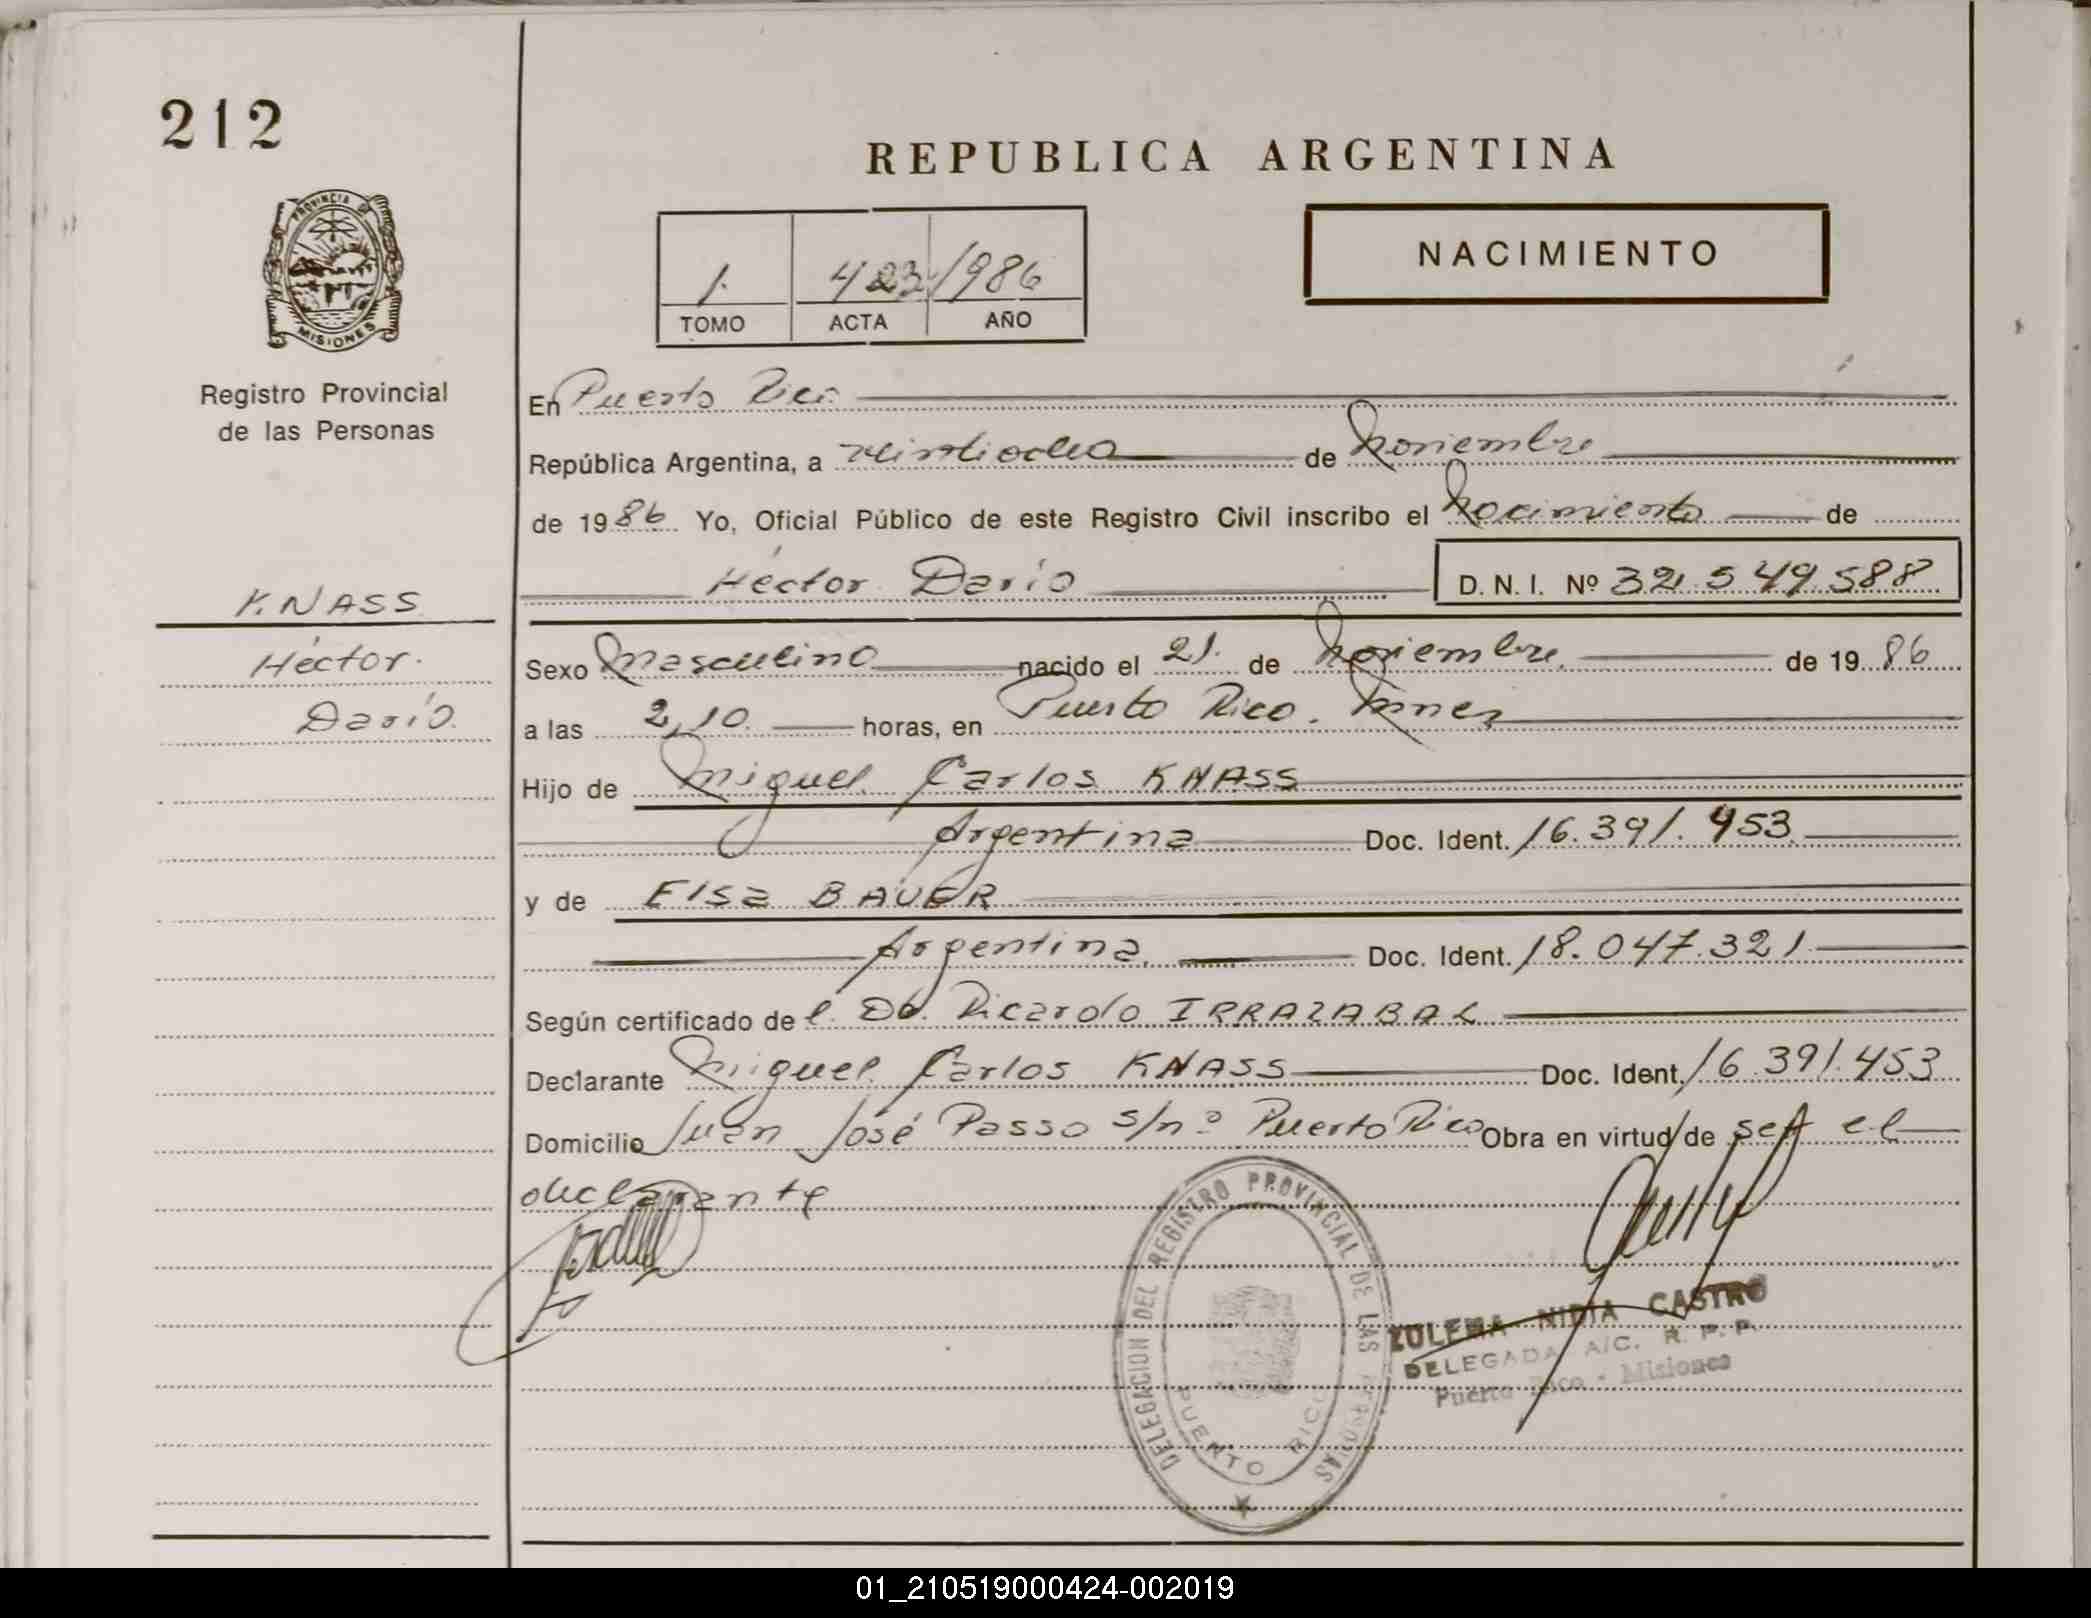 212
PROVINCIA DE
MISIONES
Registro Provincial
de las Personas
KNASS
Héctor
Darío.
REPUBLICA ARGENTINA
NACIMIENTO
1. 423 1986
TOMO ACTA AÑO
En Puerto Rico
República Argentina, a veintiocho de Noviembre
de 1986 Yo, Oficial Público de este Registro Civil inscribo el Nacimiento de
Héctor Darío D. N. I. Nº 32.549.588
Sexo Masculino nacido el 21. de Noviembre de 1986
a las 2,10 horas, en Puerto Rico. Mnes
Hijo de Miguel Carlos KNASS
Argentina Doc. Ident. 16.391.453
y de Elsa BAUER
Argentina Doc. Ident. 18.047.321
Según certificado del Dr. Ricardo IRRAZABAL
Declarante Miguel Carlos KNASS Doc. Ident. 16.391.453
Domicilio Juan José Passo s/nº Puerto Rico Obra en virtud de ser el
declarante
DELEGACION DEL REGISTRO PROVINCIAL DE LAS PERSONAS
PUERTO RICO
ZULEMA NIDIA CASTRO
DELEGADA A/C. R. P. P.
Puerto Rico - Misiones
01_210519000424-002019